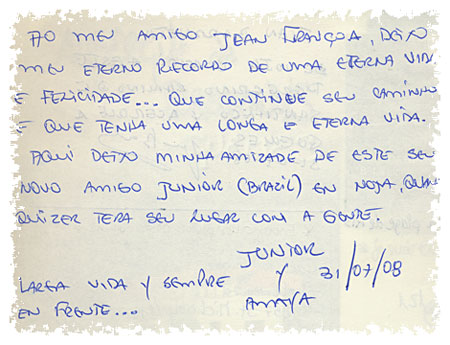 AO MEU AMIGO JEAN FRANÇOA, DEIXO
MEU ETERNO RECORDO DE UMA ETERNA VIDA
E FELICIDADE... QUE CONTINUE SEU CAMINHO
E QUE TENHA UMA LONGA E ETERNA VIDA.
AQUI DEIXO MINHA AMIZADE DE ESTE SEU
NOVO AMIGO JUNIOR (BRAZIL) EN NOJA, QUAN
QUIZER TERA SEU LUGAR COM A GENTE.
JUNIOR
Y 31/07/08
LARGA VIDA Y SEMPRE AMAYA
EN FRENTE...